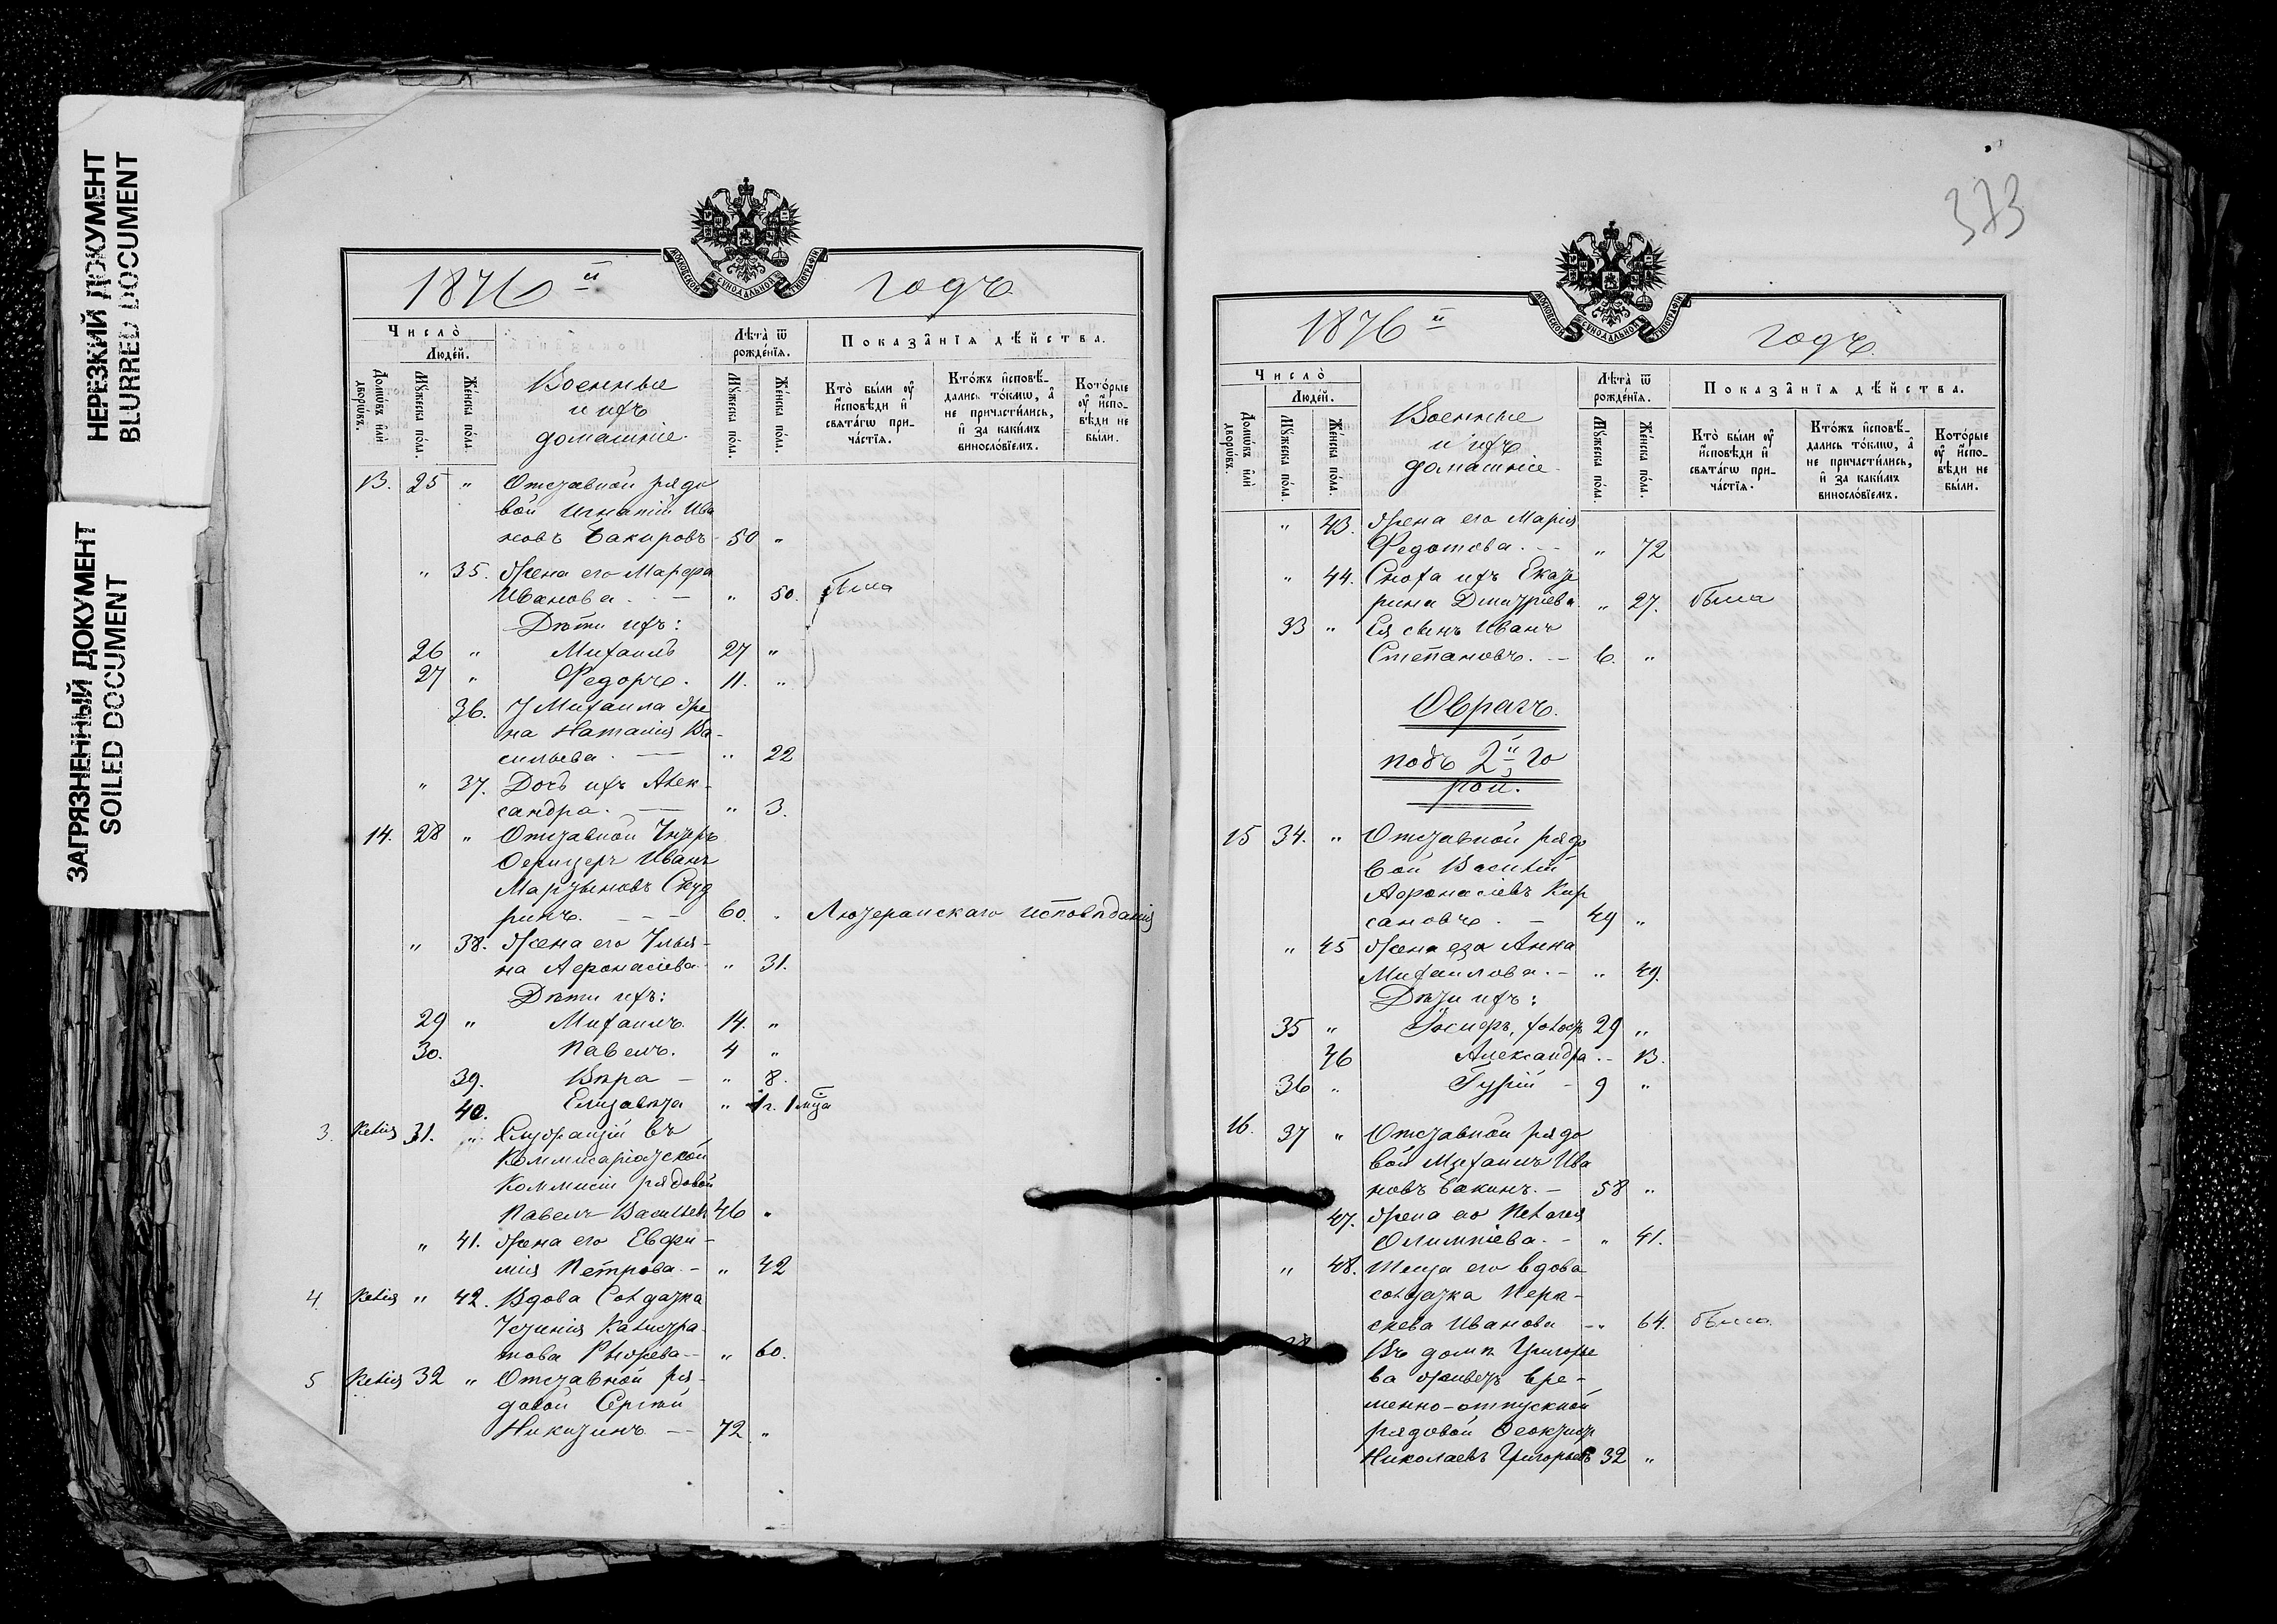 НЕРЕЗКИЙ ДОКУМЕНТ
BLURRED DOCUMENT
ЗАГРЯЗНЕННЫЙ ДОКУМЕНТ
SOILED DOCUMENT
МОСКОВСКОЙ СУНОДАЛЬНОЙ ТИПОГРАФІИ
1876 й годъ.
Число̀
Людей.
Домѡвъ или дворѡвъ.
Мꙋжеска пола.
Женска пола.
Военные
и ихъ
домашніе.
Лѣта ѿ рожденїѧ.
Мꙋжеска пола.
Женска пола.
Показанїѧ дѣйства.
Кто были ᲂу исповѣди и свѧтагѡ причастїѧ.
Ктожъ исповѣдались токмѡ, а не причастились, и за какимъ винословїемъ.
Которые ᲂу исповѣди не были.
13. 25 " Отставной рядо
вой Игнатій Ива
новъ Бакировъ - 50 "
" 35. Жена его Марфа
Иванова. - " 50. была
Дѣти ихъ:
26 " Михаилъ 27 "
27 " Федоръ. 11. "
36. У Михаила же
на Наталія Ва-
сильева. - " 22
" 37. Дочь ихъ Алек-
сандра. - " 3.
14. 28 " Отставной Унтръ
Офицеръ Иванъ
Мартыновъ
ринъ. - - - 60. " Лютеранскаго исповѣданія
" 38. Жена его Улья-
на Афонасіева - " 31.
Дѣти ихъ:
29 " Михаилъ. 14. "
30. Павелъ. 4 "
39. Вѣра - " 8.
40. Елизавета " 1 г. 1 мца
3. Келія 31. " Служащій въ
Коммисаріатской
Коммисіи рядовой
Павелъ Васильевъ 46 "
" 41. Жена его Евфи-
мія Петрова. - " 42
4. Келія " 42. Вдова Солдатка
Устинія Калистра-
това - " 60.
5 Келія 32 " Отставной ря-
довой Сергѣй
Никитинъ - 72 "
373
МОСКОВСКОЙ СУНОДАЛЬНОЙ ТИПОГРАФІИ
1876 й годъ.
Число̀
Людей.
Домѡвъ или дворѡвъ.
Мꙋжеска пола.
Женска пола.
Военные
и ихъ
домашніе.
Лѣта ѿ рожденїѧ.
Мꙋжеска пола.
Женска пола.
Показанїѧ дѣйства.
Кто были ᲂу исповѣди и свѧтагѡ причастїѧ.
Ктожъ исповѣдались токмѡ, а не причастились, и за какимъ винословїемъ.
Которые ᲂу исповѣди не были.
" 43. Жена его Марія
Федотова. - " 72
" 44. Сноха ихъ Екате
рина Дмитріева " 27. была
33 " Ея сынъ Иванъ
Степановъ. - 6. "
Оврагъ.
подъ 2й го
рой.
15 34. " Отставной рядо
вой Василій
Афонасіевъ Кир
сановъ. - 49 "
" 45 Жена его Анна
Михайлова. - " 49.
Дѣти ихъ:
35 " Іосифъ, холост 29 "
46 Александра. - 13.
36 " Гурій - 9 "
16. 37 " Отставной рядо
вой Михаилъ Ива
новъ Бакинъ. - 58 "
47. Жена его Пелагея
Олимпіева. - " 41.
" 48. Теща его вдова
солдатка Пера-
скева Иванова - " 64. была
38 Въ домѣ Григорье
ва живетъ вре-
менно-отпускной
рядовой Феоктистъ
Николаевъ Григорьевъ 32 "